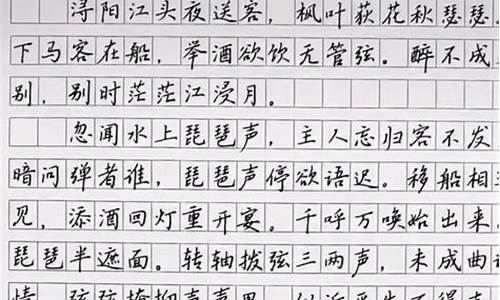 浔阳江头夜送客，枫叶荻花秋瑟瑟。
下马客在船，举酒欲饮无管弦。醉不成
别，别时茫茫江浸月。
忽闻水上琵琶声，主人忘归客不发
暗问弹者谁，琵琶声停欲语迟。移船相
见，添酒回灯重开宴。千呼万唤始出来，
琵琶半遮面。转轴拨弦三两声，未成曲
情，弦弦掩抑声声思，似